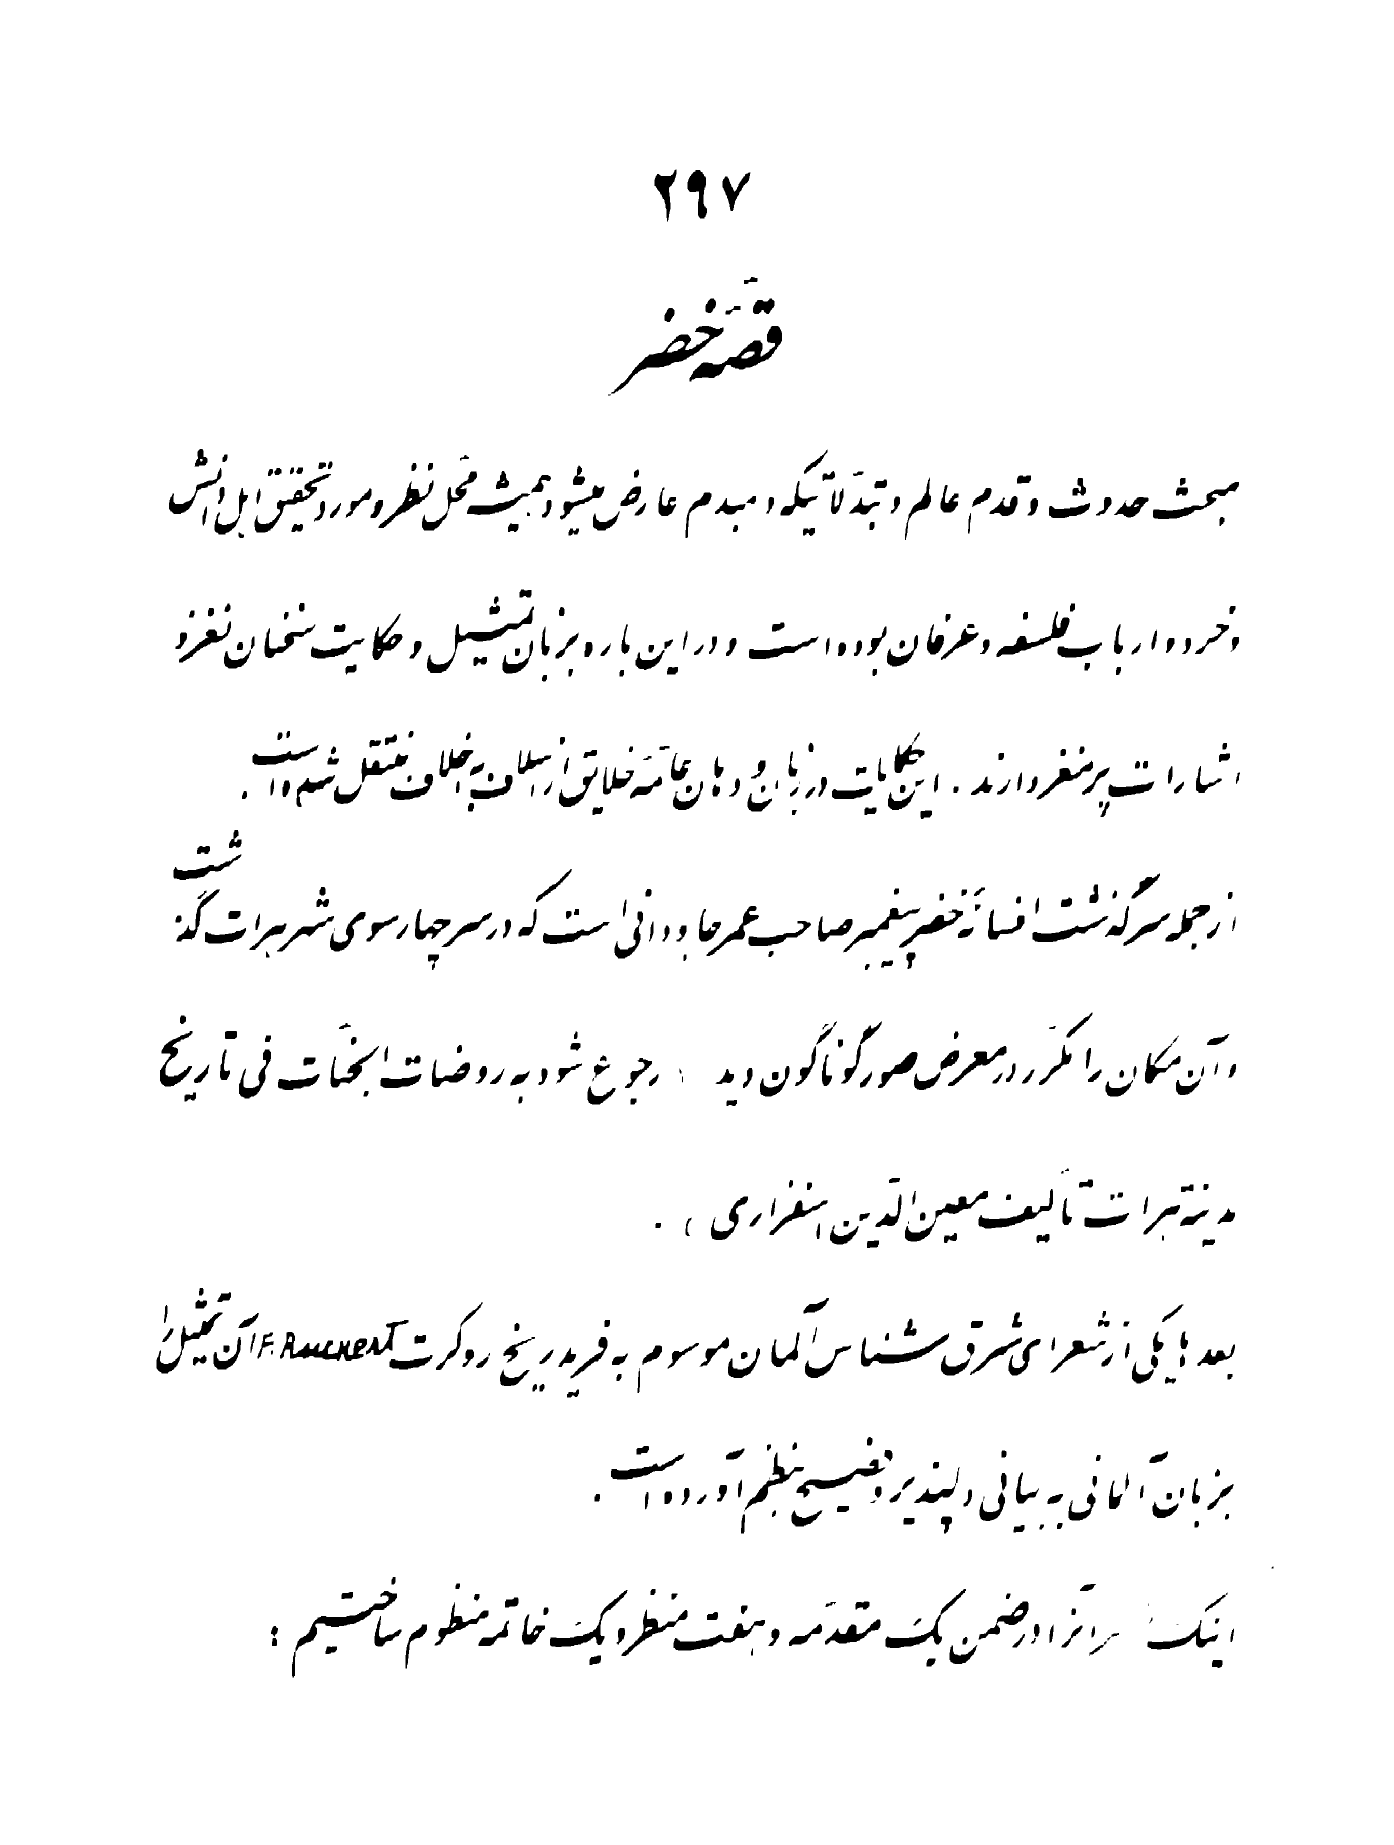 ۲۹۷
قصّهٔ خضر
مبحث حدوث و قدم عالم و تبدّلاتیکه دمبدم عارض میشود همیشه محلّ نظر و مورد تحقیق اهل دانش
و خرد و ارباب فلسفه و عرفان بوده است و در این باره بزبان تمثیل و حکایت سخنان نغز و
اشارات پر مغز دارند . این حکایات در زبان و دهان عامّهٔ خلایق از اسلاف به اخلاف منتقل شده است .
از جمله سرگذشت افسانهٔ خضر پیغمبر صاحب عمر جاودانی است که در سر چهارسوی شهر هرات گذشت
و آن مکان را مکرّر در معرض صور گوناگون دید ( رجوع شود به روضات الجنّات فی تاریخ
مدینة هرات تألیف معین الدّین اسفزاری ) .
بعدها یکی از شعرای شرق شناس آلمان موسوم به فریدریخ روکرت F. Ruckert آن تمثیل را
بزبان آلمانی به بیانی دلپذیر و فصیح بنظم آورده است .
اینک آنرا در ضمن یک مقدّمه و هفت منظر و یک خاتمه منظوم ساختیم :